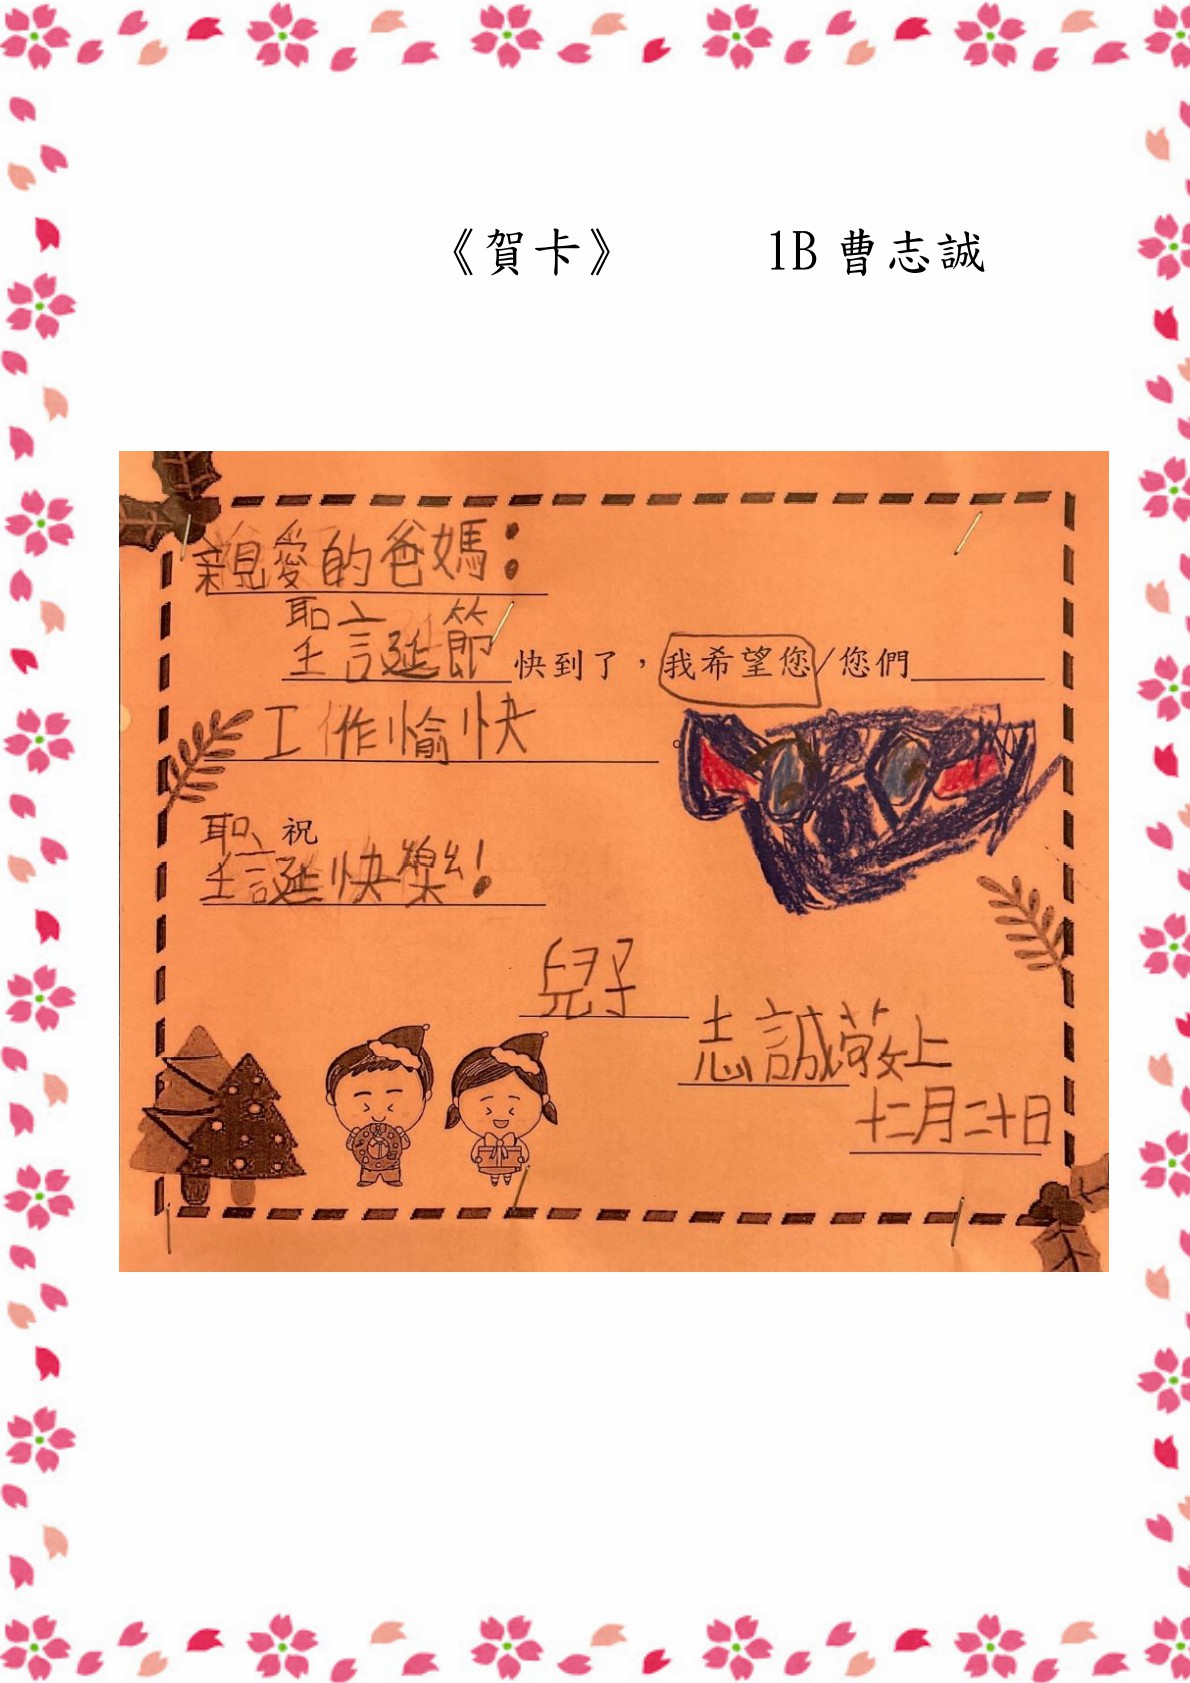 《賀卡》 1B 曹志誠
親愛的爸媽：
聖誕節快到了，我希望您/您們
工作愉快。
祝
聖誕快樂！
兒子
志誠敬上
十二月二十日